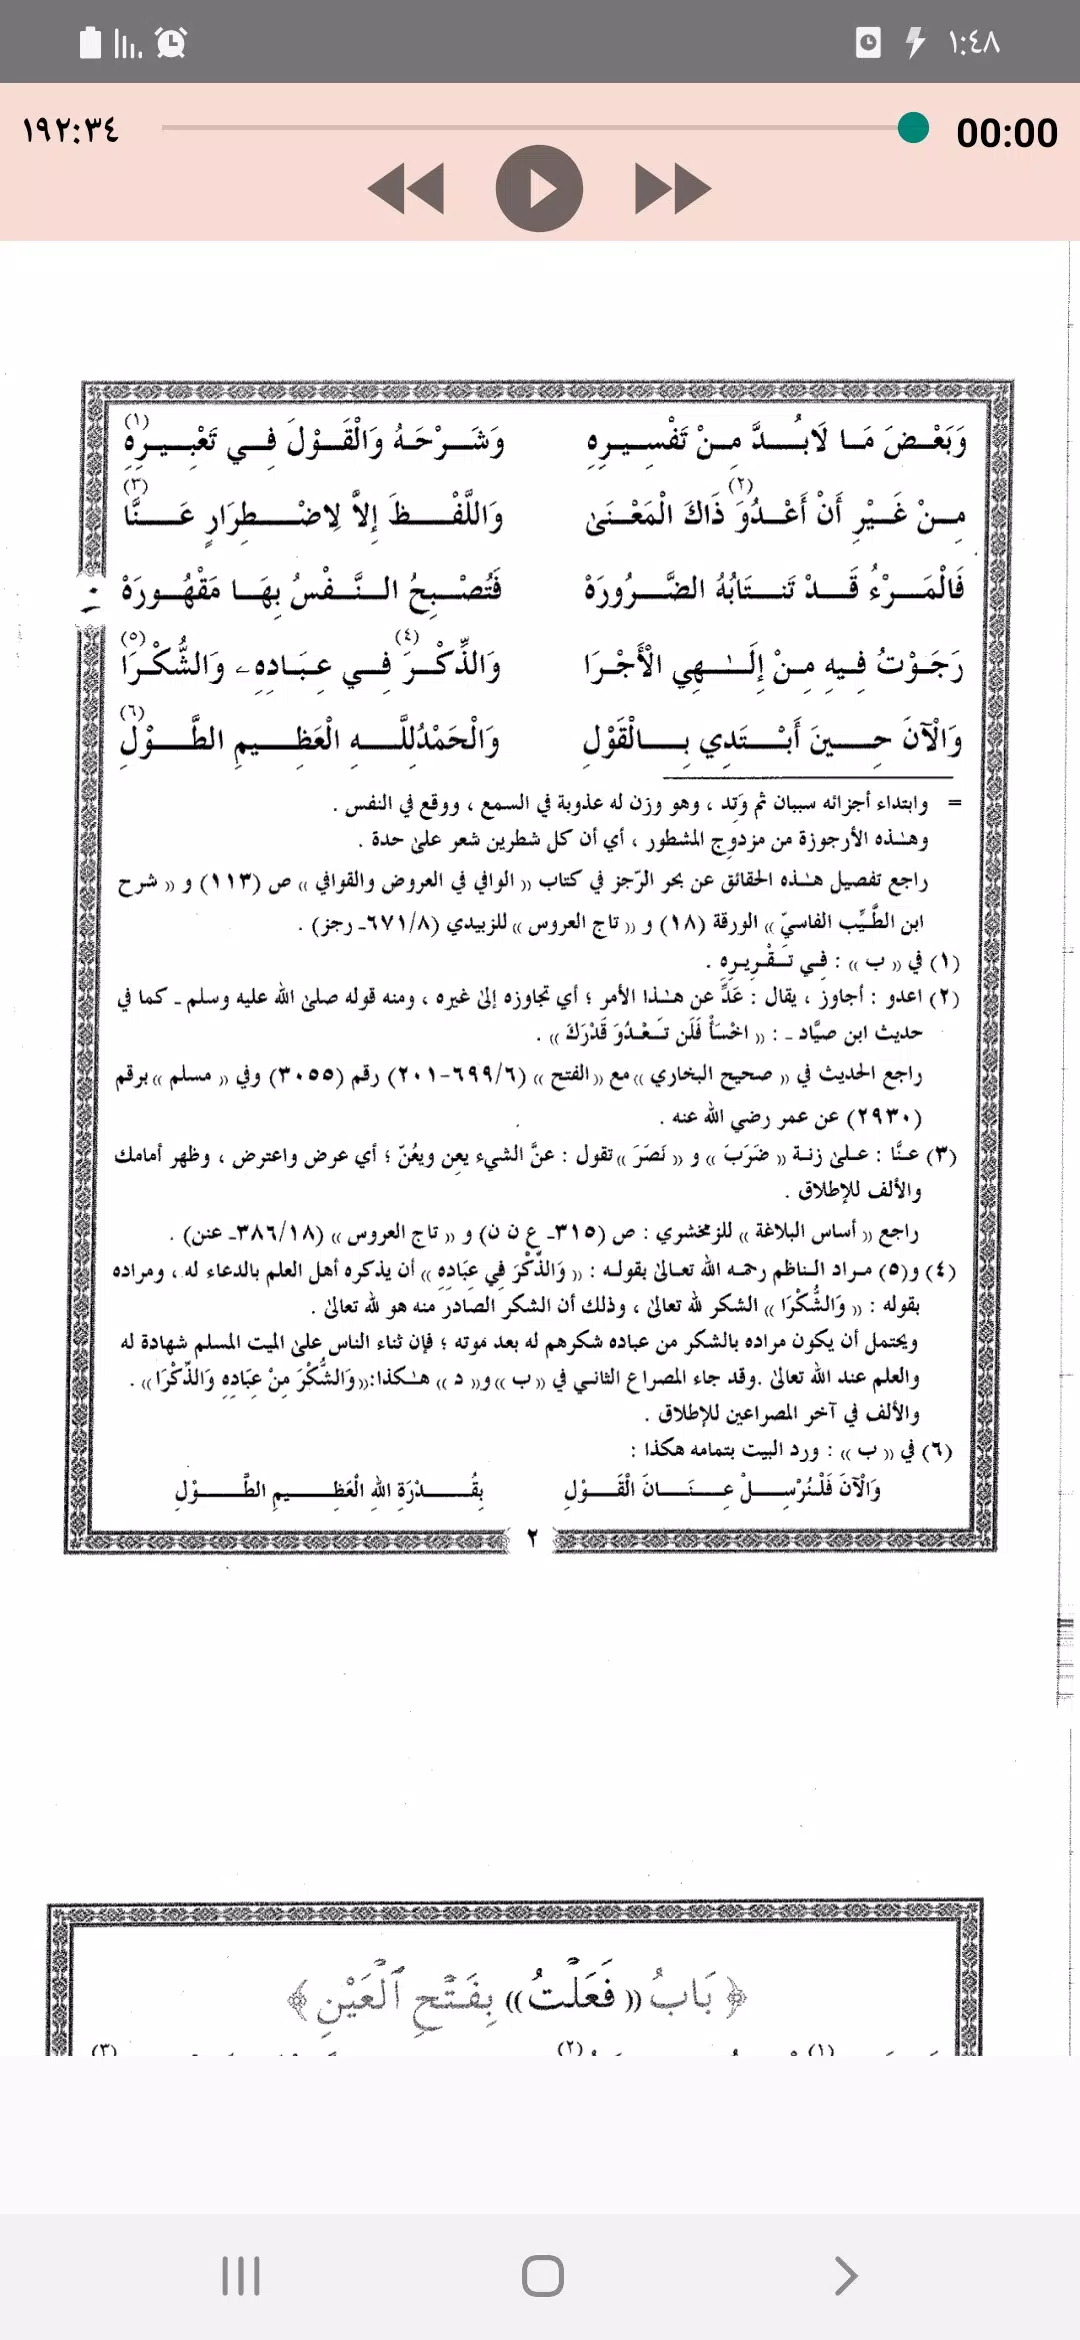 ١:٤٨
١٩٢:٣٤ 00:00
وَبَعْضَ مَا لَابُدَّ مِنْ تَفْسِيرِهِ وَشَرْحَهُ وَالْقَوْلَ فِي تَعْبِيرِهِ (١)
مِنْ غَيْرِ أَنْ أَعْدُوَ (٢) ذَاكَ الْمَعْنَىٰ وَاللَّفْظَ إِلاَّ لِاضْطِرَارٍ عَنَّا (٣)
فَالْمَرْءُ قَدْ تَنتَابُهُ الضَّرُورَهْ فَتُصْبِحُ النَّفْسُ بِهَا مَقْهُورَهْ
١٠
رَجَوْتُ فِيهِ مِنْ إِلَـٰهِي الْأَجْرَا وَالذِّكْرَ (٤) فِي عِبَادِهِ وَالشُّكْرَا (٥)
وَالْآنَ حِينَ أَبْتَدِي بِالْقَوْلِ وَالْحَمْدُلِلَّهِ الْعَظِيمِ الطَّوْلِ (٦)
= وابتداء أجزائه سببان ثم وَتِد ، وهو وزن له عذوبة في السمع ، ووقع في النفس .
وهـٰذه الأرجوزة من مزدوج المشطور ، أي أن كل شطرين شعر علىٰ حدة .
راجع تفصيل هـٰذه الحقائق عن بحر الرّجز في كتاب « الوافي في العروض والقوافي » ص (١١٣) و « شرح
ابن الطَّيِّب الفاسيّ » الورقة (١٨) و « تاج العروس » للزبيدي (٨/٦٧١ـ رجز) .
(١) في « ب » : فِي تَقْرِيرِهِ .
(٢) اعدو : أجاوز ، يقال : عَدِّ عن هـٰذا الأمر ؛ أي تجاوزه إلىٰ غيره ، ومنه قوله صلىٰ الله عليه وسلم ـ كما في
حديث ابن صيَّاد ـ : « اخْسَأْ فَلَن تَعْدُوَ قَدْرَكَ » .
راجع الحديث في « صحيح البخاري » مع « الفتح » (٦/٦٩٩-٢٠١) رقم (٣٠٥٥) وفي « مسلم » برقم
(٢٩٣٠) عن عمر رضي الله عنه .
(٣) عنَّا : علىٰ زنة « ضَرَبَ » و « نَصَرَ » تقول : عنَّ الشيء يعِن ويعُنّ ؛ أي عرض واعترض ، وظهر أمامك
والألف للإطلاق .
راجع « أساس البلاغة » للزمخشري : ص (٣١٥ـ ع ن ن) و « تاج العروس » (١٨/٣٨٦ـ عنن) .
(٤) و(٥) مراد الناظم رحمه الله تعالىٰ بقوله : « وَالذِّكْرَ فِي عِبَادِهِ » أن يذكره أهل العلم بالدعاء له ، ومراده
بقوله : « وَالشُّكْرَا » الشكر لله تعالىٰ ، وذلك أن الشكر الصادر منه هو لله تعالىٰ .
ويحتمل أن يكون مراده بالشكر من عباده شكرهم له بعد موته ؛ فإن ثناء الناس علىٰ الميت المسلم شهادة له
والعلم عند الله تعالىٰ .وقد جاء المصراع الثاني في « ب » و« د » هـٰكذا:« وَالشُّكْرَ مِنْ عِبَادِهِ وَالذِّكْرَا » .
والألف في آخر المصراعين للإطلاق .
(٦) في « ب » : ورد البيت بتمامه هكذا :
وَالْآنَ فَلْنُرْسِلْ عِنَانَ الْقَوْلِ بِقُدْرَةِ اللهِ الْعَظِيمِ الطَّوْلِ
٢
﴿ بَابُ « فَعَلْتُ » بِفَتْحِ الْعَيْنِ ﴾
(١) (٢) (٣)